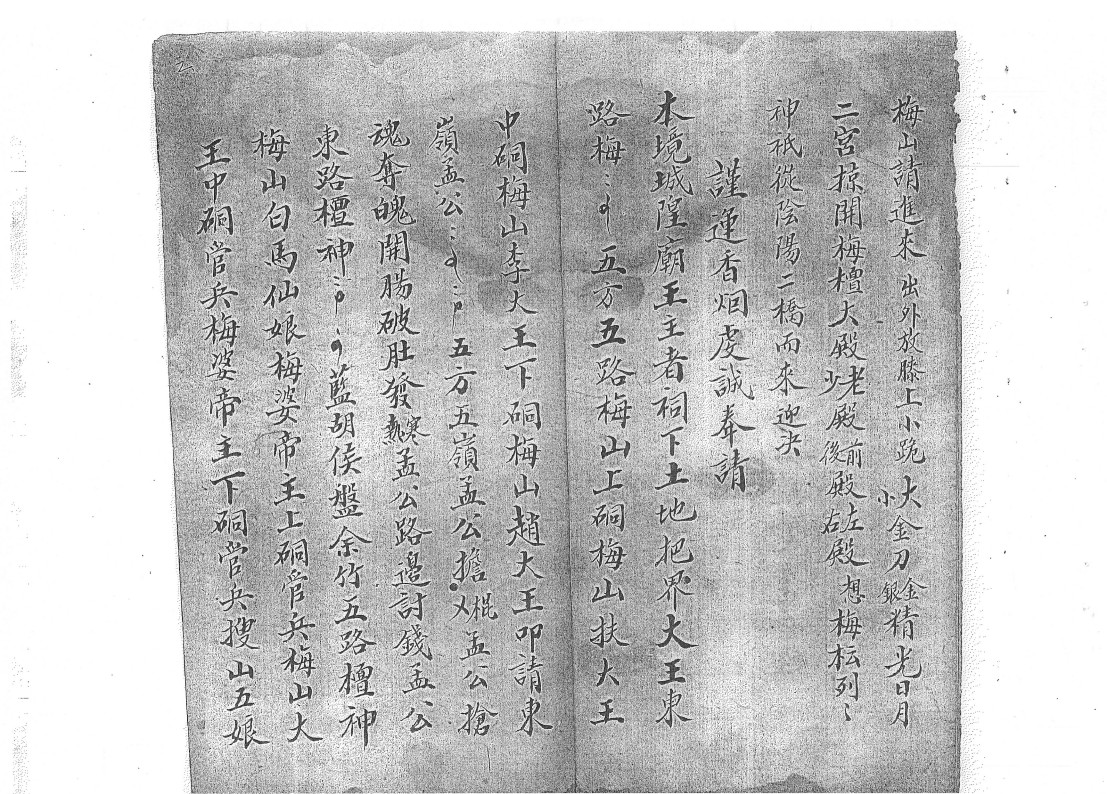 梅山請進來出外放膝上小跪大小金刀金銀精光日月
二宮掠開梅檀大殿老少殿前後殿左右殿想梅枟列〻
神祇從陰陽二橋而來迎決
謹運香烟虔誠奉請
本境城隍廟王主者祠下土地把界大王東
路梅〻五方五路梅山上硐梅山扶大王
中硐梅山李大王下硐梅山趙大王叩請東
嶺孟公〻五方五嶺孟公擔棍孟公搶
魂奪魄開腸破肚發寒熱孟公路邊討錢孟公
東路檀神〻藍胡侯盤余竹五路檀神
梅山白馬仙娘梅婆帝王上硐管兵梅山大
王中硐管兵梅婆帝主下硐管兵搜山五娘